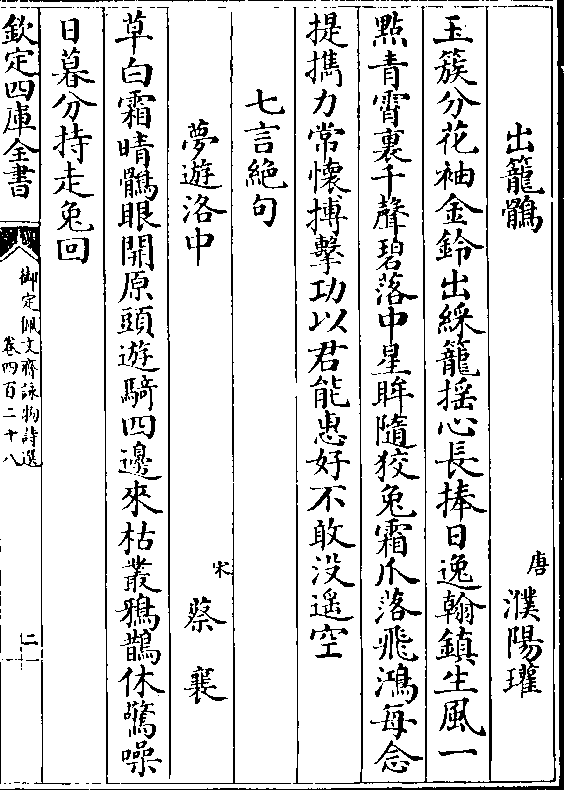 出籠鶻 唐 濮陽瓘
玉簇分花袖金鈴出綵籠揺心長捧日逸翰鎮生風一
點青霄裏千聲碧落中星眸隨狡兎霜爪落飛鴻毎念
提擕力常懐摶擊功以君能惠好不敢没遥空
七言絶句
夢遊洛中 宋 蔡襄
草白霜晴鶻眼開原頭遊騎四邊來枯叢鴉鵲休驚噪
日暮分持走兎回
欽定四庫全書
御定佩文齋詠物詩選
卷四百二十八
二